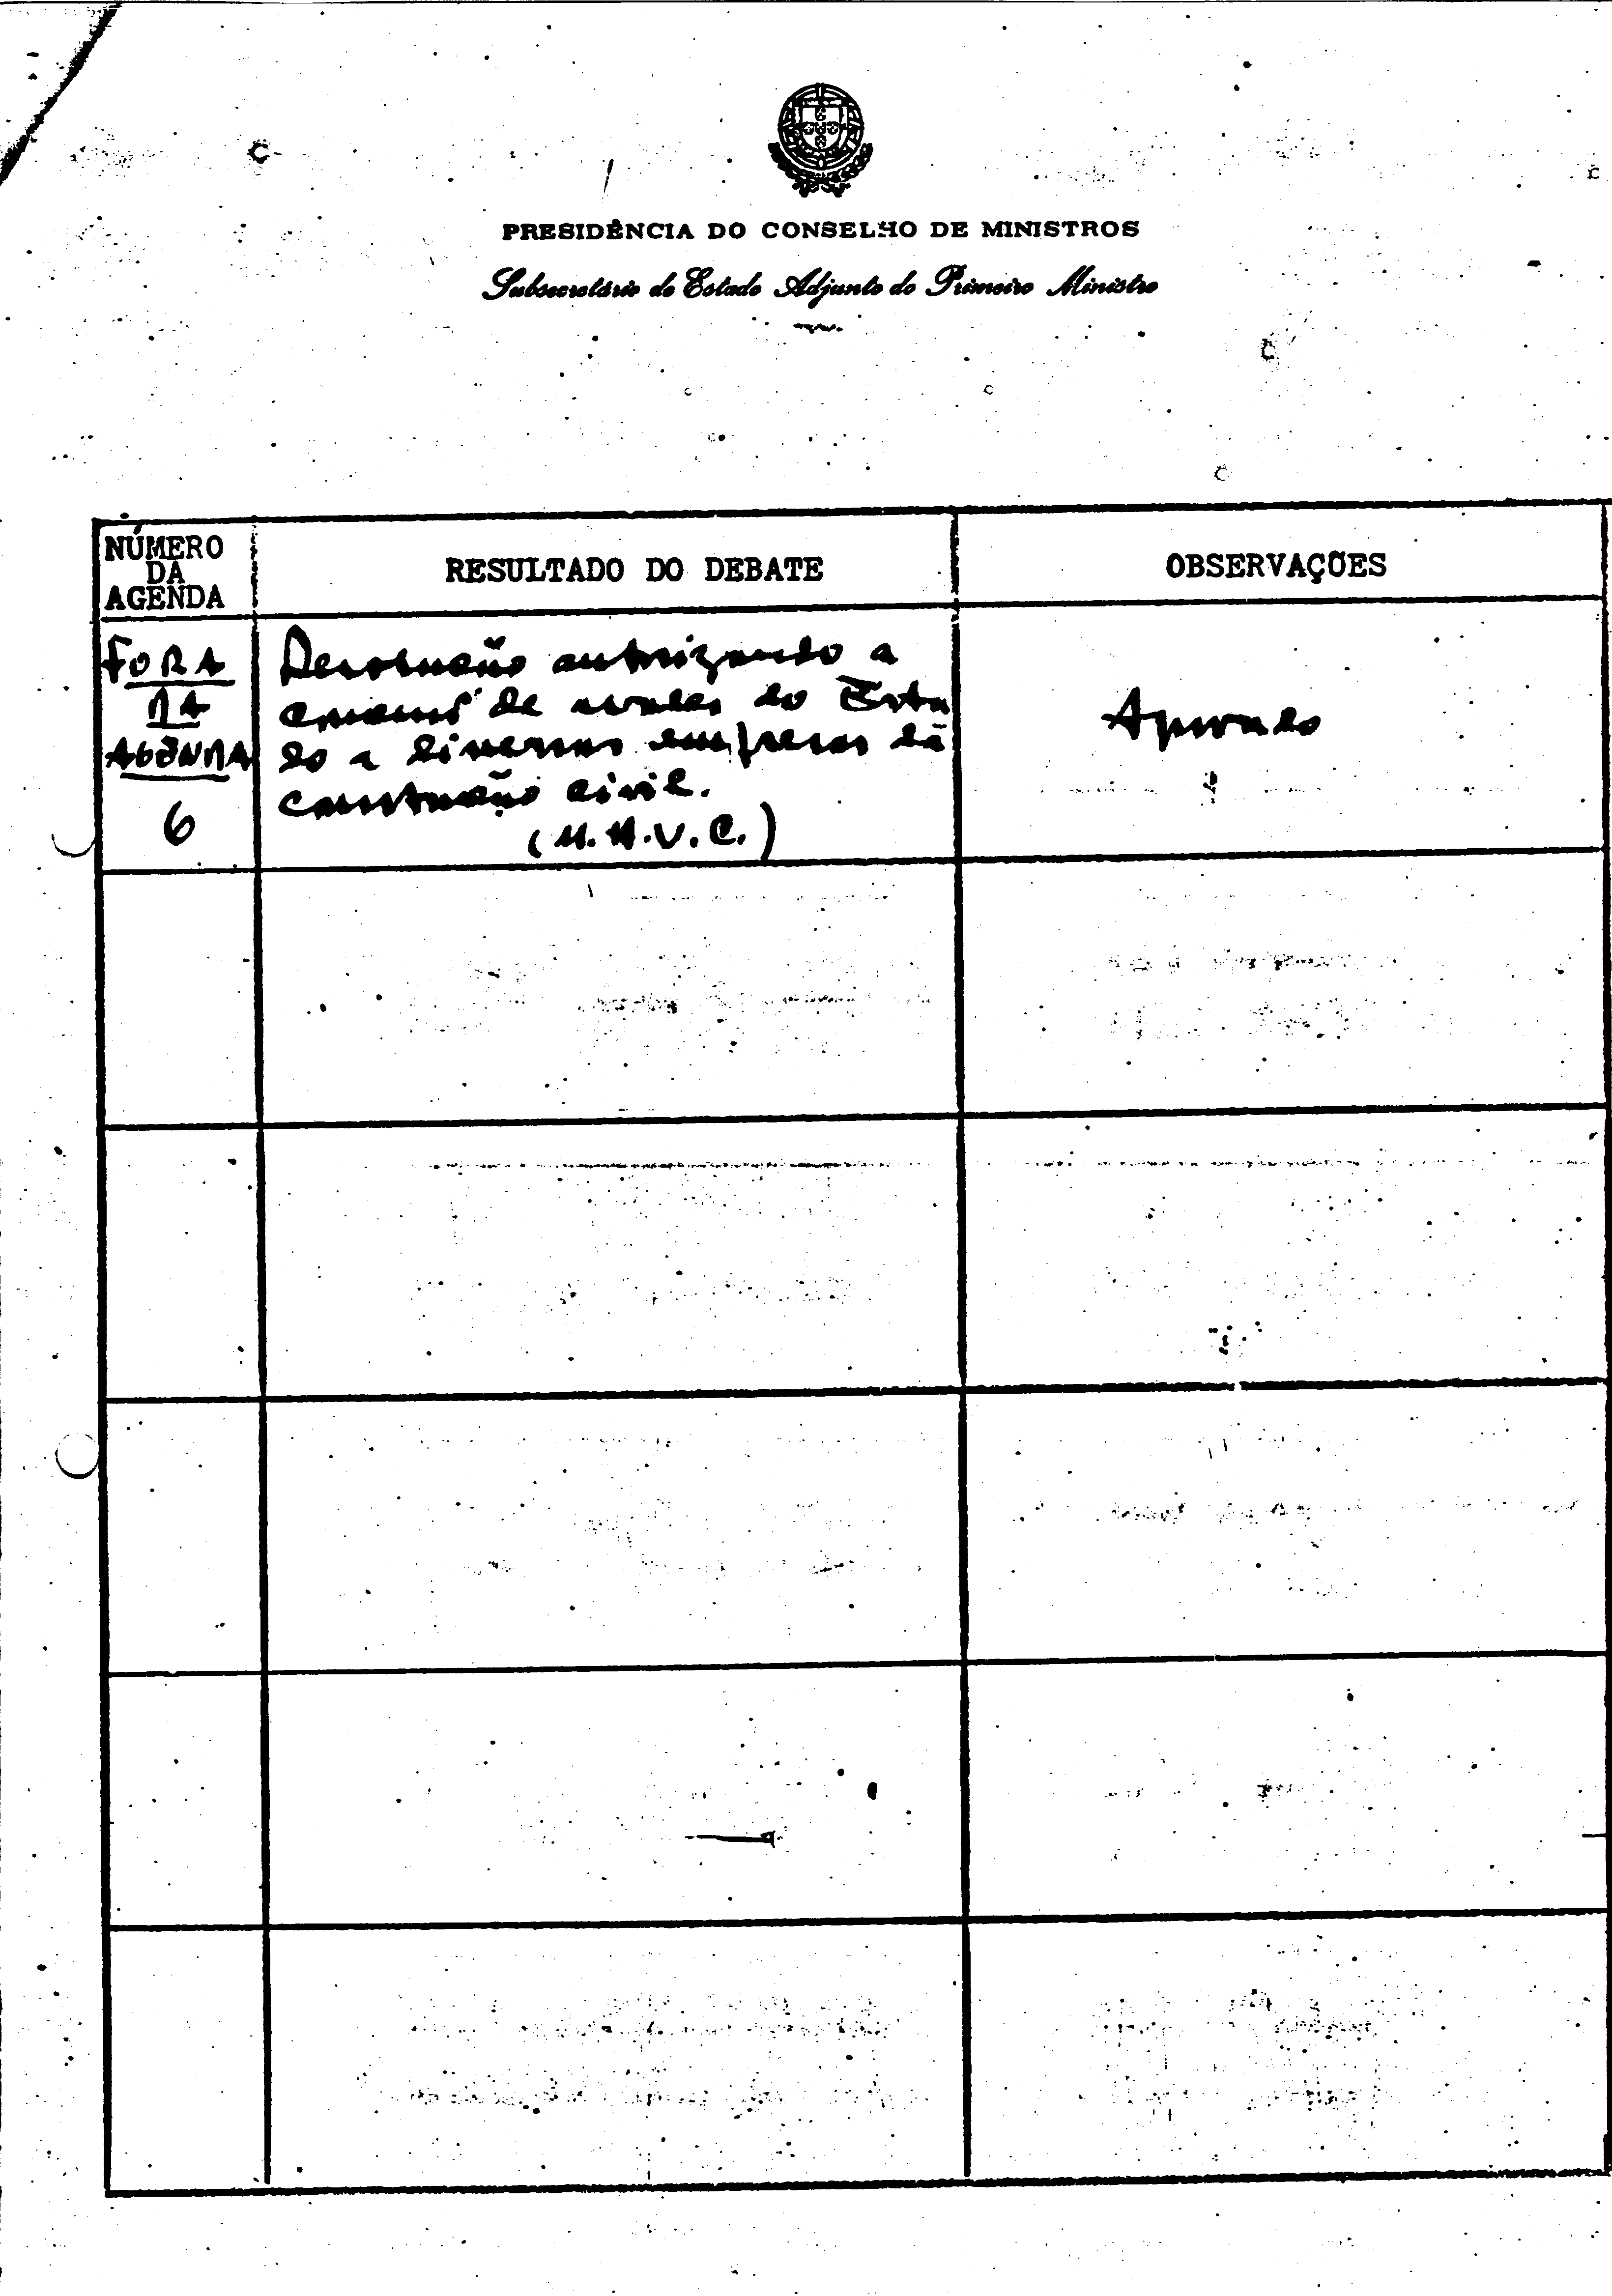 PRESIDÊNCIA DO CONSELHO DE MINISTROS
Subsecretário de Estado Adjunto do Primeiro Ministro
NÚMERO
DA
AGENDA
RESULTADO DO DEBATE
OBSERVAÇÕES
FORA
DA
AGENDA
6
Resolução autorizando a
de avales do Esta
do a diversas empresas da
construção civil.
(M.H.U.C.)
Aprovado